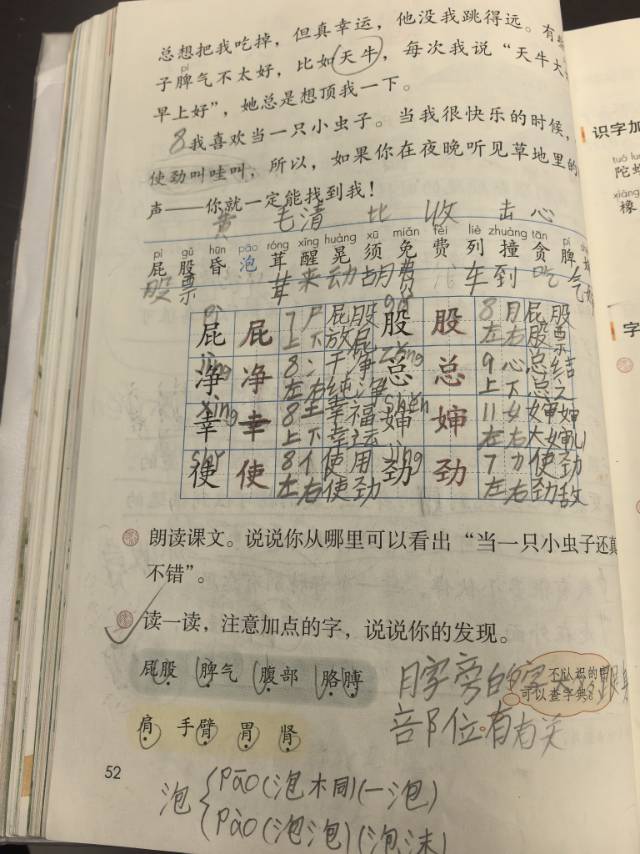 总想把我吃掉，但真幸运，他没我跳得远。有
pí
子脾气不太好，比如天牛，每次我说“天牛大
早上好”，她总是想顶我一下。
8我喜欢当一只小虫子。当我很快乐的时候，
使劲叫哇叫，所以，如果你在夜晚听见草地里的
声——你就一定能找到我！
黄 毛清 比 收 击心
pì gǔ hūn pāo róng xǐng huàng xū miǎn fèi liè zhuàng tān pí
屁股昏泡茸醒晃须免费列撞贪脾
股票 茸来动胡费 车到吃气
pì gǔ
屁 屁 7尸屁股 股 股 8月屁股
上下放屁 左右股票
jìng zǒng
净 净 8冫干净 总 总 9心总结
左右纯净 上下总之
xìng shěn
幸 幸 8土幸福 婶 婶 11女婶婶
上下幸运 左右大婶儿
shǐ jìng
使 使 8亻使用 劲 劲 7力使劲
左右使劲 左右劲敌
朗读课文。说说你从哪里可以看出“当一只小虫子还真
不错”。
读一读，注意加点的字，说说你的发现。
屁股 脾气 腹部 胳膊
不认识的
可以查字典。
肩 手臂 胃 肾
月字旁的字
部位有关
52
泡 pāo(泡木同)(一泡)
pào(泡泡)(泡沫)
识字加
tuó luó
陀螺
xiàng
橡
字